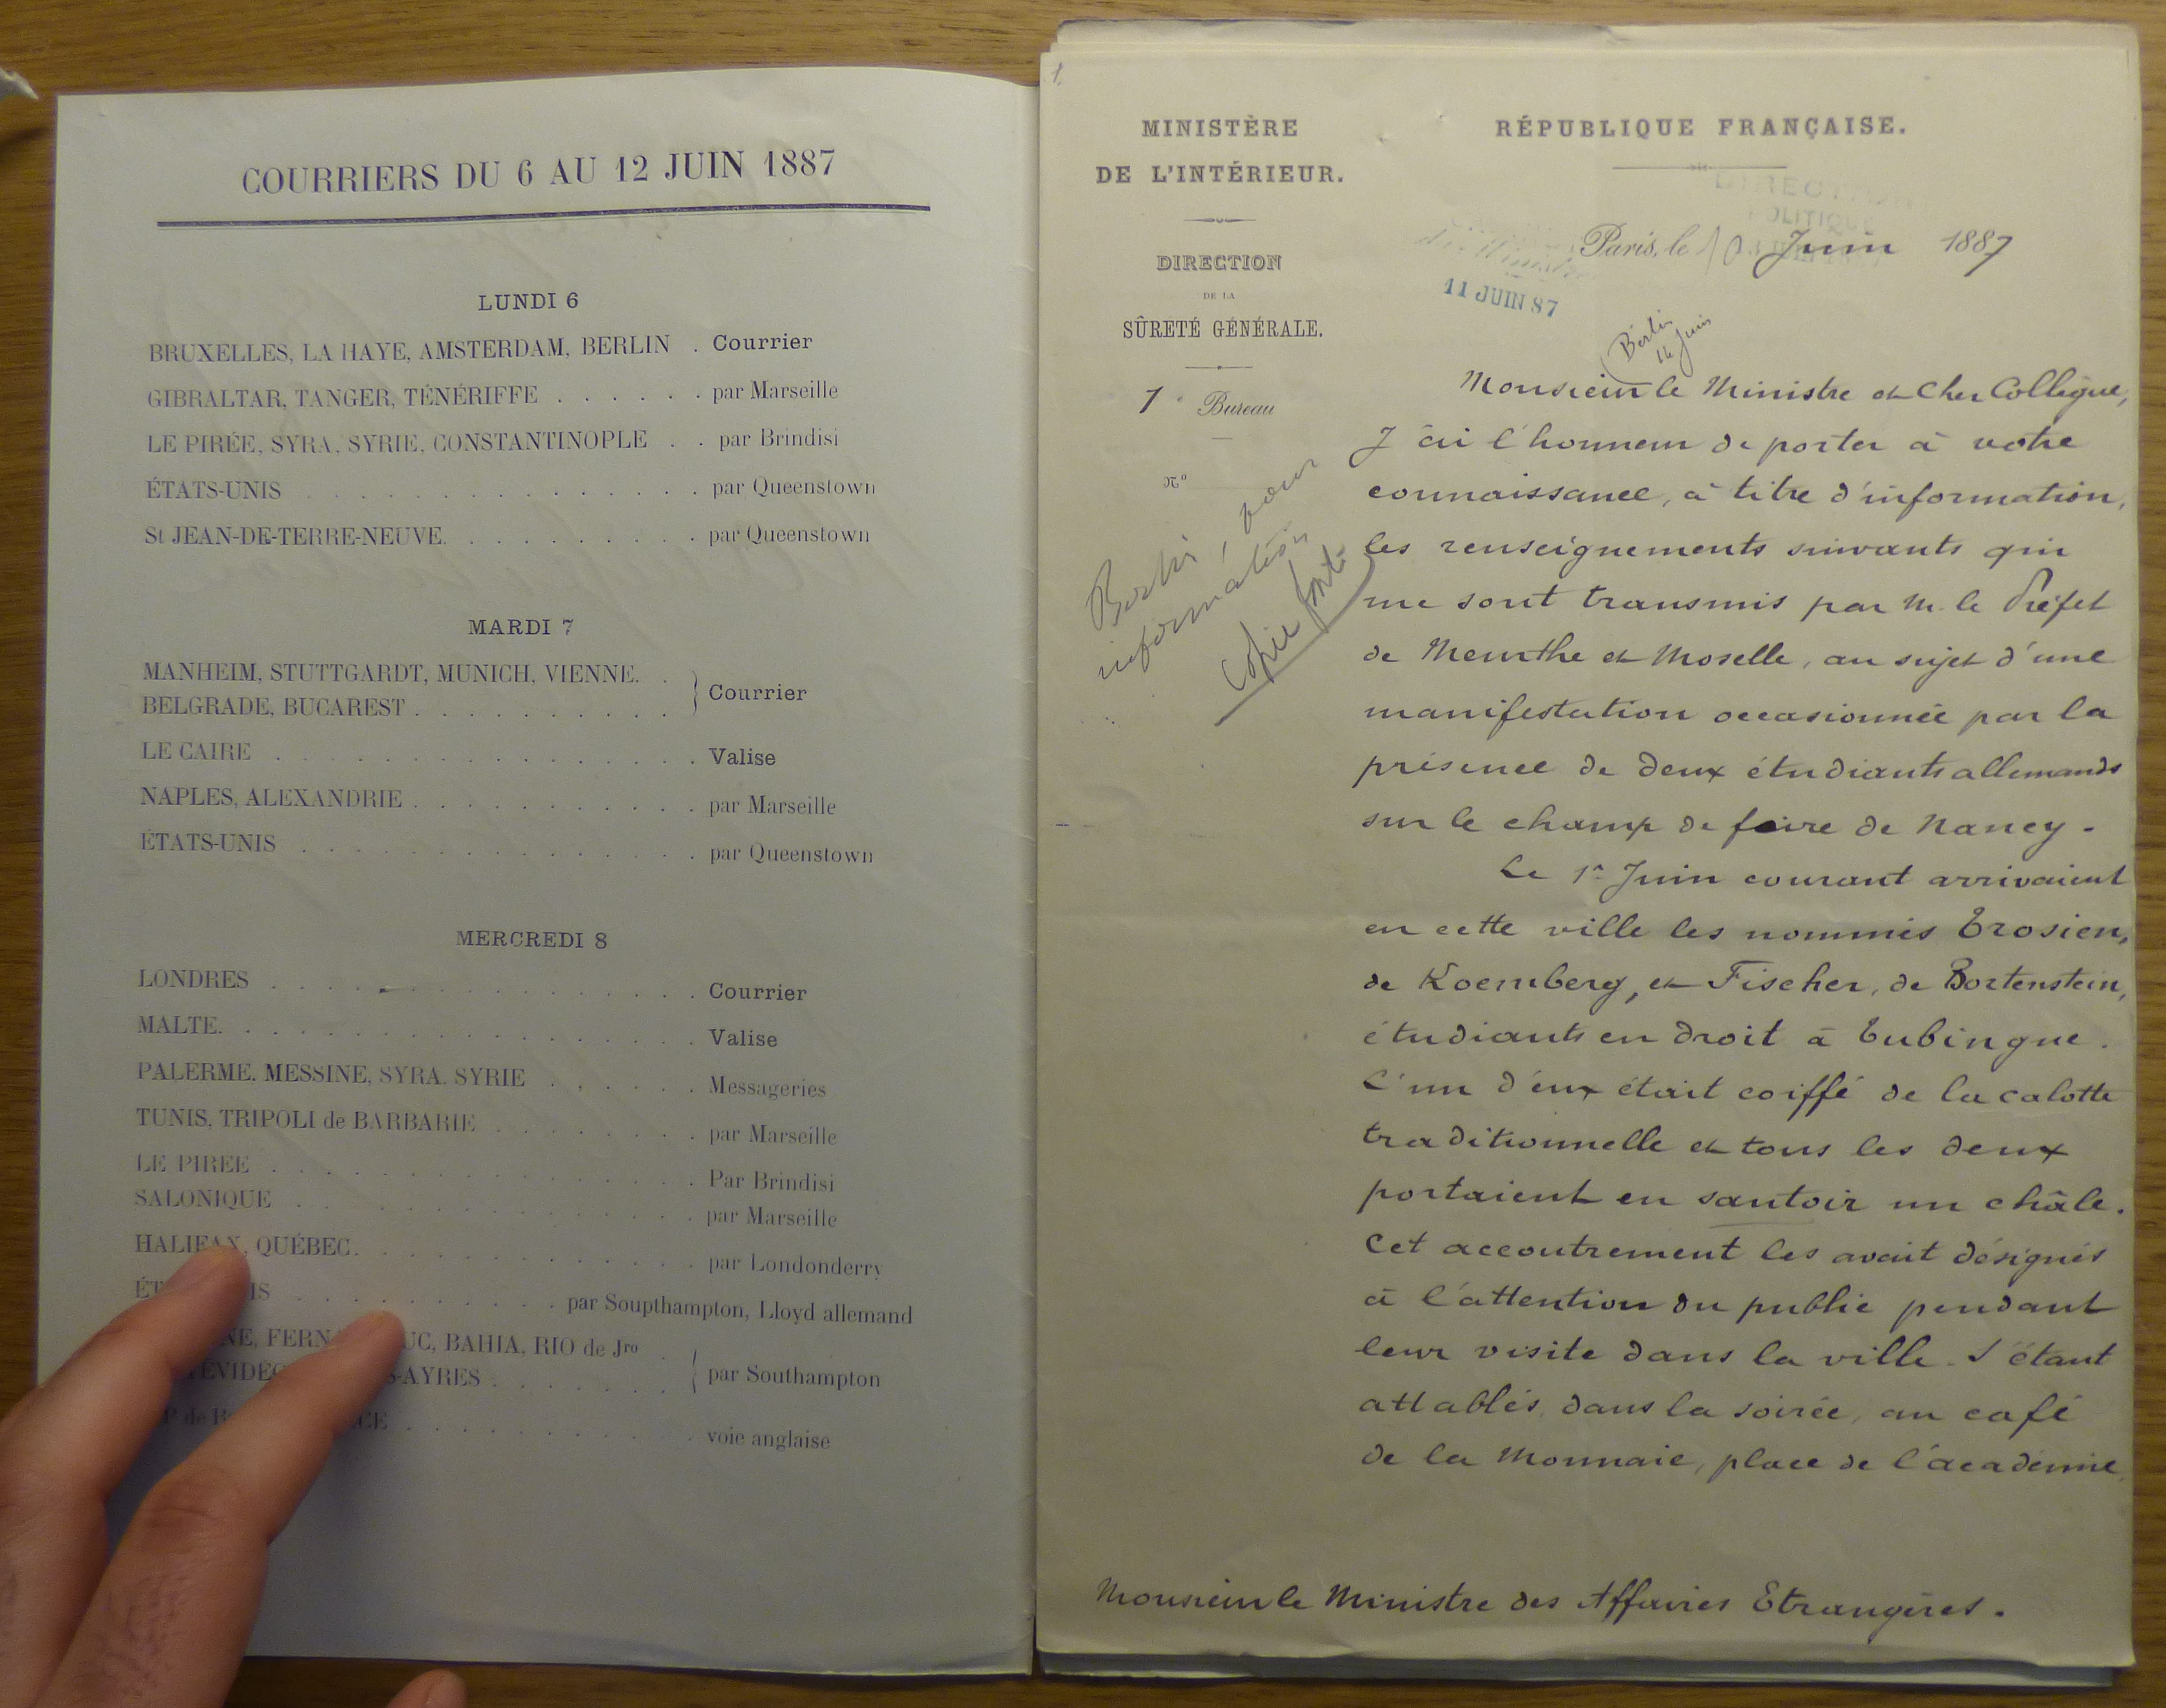 COURRIERS DU 6 AU 12 JUIN 1887
LUNDI 6
BRUXELLES, LA HAYE, AMSTERDAM, BERLIN . Courrier
GIBRALTAR, TANGER, TÉNÉRIFFE . . . . . . par Marseille
LE PIRÉE, SYRA, SYRIE, CONSTANTINOPLE . . par Brindisi
ÉTATS-UNIS . . . . . . . . . . . . . . . par Queenstown
St JEAN-DE-TERRE-NEUVE. . . . . . . . . . par Queenstown
MARDI 7
MANHEIM, STUTTGARDT, MUNICH, VIENNE. .
BELGRADE, BUCAREST . . . . . . . . . . } Courrier
LE CAIRE . . . . . . . . . . . . . . . . Valise
NAPLES, ALEXANDRIE . . . . . . . . . . . par Marseille
ÉTATS-UNIS . . . . . . . . . . . . . . . par Queenstown
MERCREDI 8
LONDRES . . . . . . . . . . . . . . . . Courrier
MALTE. . . . . . . . . . . . . . . . . . Valise
PALERME. MESSINE, SYRA. SYRIE . . . . . . Messageries
TUNIS, TRIPOLI de BARBARIE . . . . . . . par Marseille
LE PIREE . . . . . . . . . . . . . . . . Par Brindisi
SALONIQUE . . . . . . . . . . . . . . . par Marseille
HALIFAX, QUÉBEC. . . . . . . . . . . . . par Londonderry
ÉT IS . . . . . . . . . . par Soupthampton, Lloyd allemand
NE, FERN UC, BAHIA, RIO de Jro .
ÉVIDÉ S-AYRES . . . . . . . { par Southampton
de B CE . . . . . . . . . . . voie anglaise
1.
MINISTÈRE
DE L'INTÉRIEUR.
DIRECTION
DE LA
SÛRETÉ GÉNÉRALE.
1e Bureau
No
Berlin, pour
information
copie
RÉPUBLIQUE FRANÇAISE.
DIRECTION
POLITIQUE
Paris, le 10 Juin 1887
11 JUIN 87
Berlin
14 Juin
Monsieur le Ministre et Cher Collègue,
J'ai l'honneur de porter à votre
connaissance, à titre d'information,
les renseignements suivants qui
me sont transmis par M. le Préfet
de Meurthe et Moselle, au sujet d'une
manifestation occasionnée par la
présence de deux étudiants allemands
sur le champ de foire de Nancy.
Le 1er Juin courant arrivaient
en cette ville les nommés Trosien,
de Koemberg, et Fischer, de Bortenstein,
étudiants en droit à Tubingue.
L'un d'eux était coiffé de la calotte
traditionnelle et tous les deux
portaient en sautoir un châle.
Cet accoutrement les avait désignés
à l'attention du public pendant
leur visite dans la ville. S'étant
attablés, dans la soirée, au café
de la Monnaie, place de l'académie
Monsieur le Ministre des Affaires Etrangères.